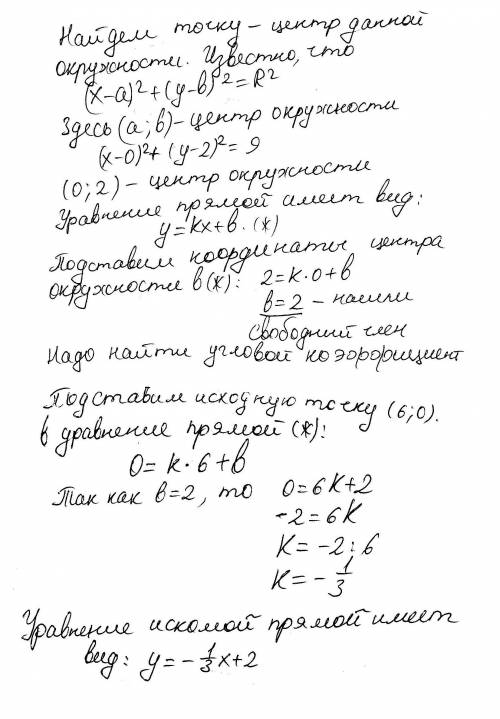 Найдем точку – центр данной
окружности. Известно, что
(x-a)²+(y-b)²=R²
Здесь (a;b)-центр окружности
(x-0)²+(y-2)²= 9
(0;2) – центр окружности
Уравнение прямой имеет вид:
y=kx+b. (*)
Подставим координаты центра
окружности в(*): 2=k·0+b
b=2 – нашли
свободний член
Надо найти угловой коэффициент
Подставим исходную точку (6;0).
в уравнение прямой (*):
0= k·6+b
Так как b=2, то 0=6k+2
-2=6k
k= -2:6
k= - 1/3
Уравнение искомой прямой имеет
вид: y= - 1/3 x+2